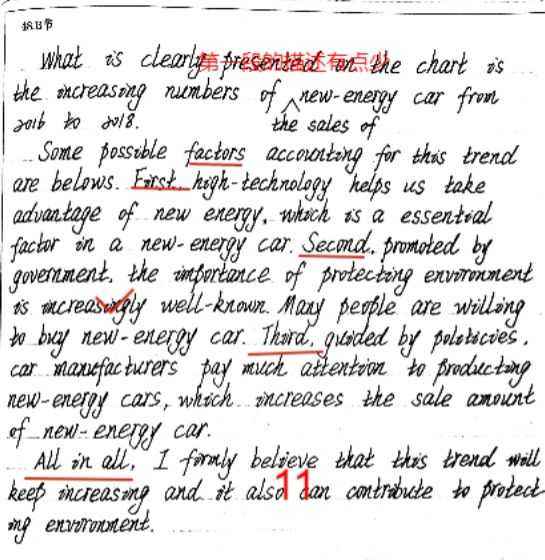 48日书
第一段的描述有点少
What is clearly presented on the chart is
the increasing numbers of new-energy car from
the sales of
2016 to 2018.
Some possible factors accounting for this trend
are belows. First, high-technology helps us take
advantage of new energy, which is a essential
factor in a new-energy car. Second, promoted by
government, the importance of protecting environment
is increasingly well-known. Many people are willing
to buy new-energy car. Third, guided by poloticies,
car manufacturers pay much attention to producting
new-energy cars, which increases the sale amount
of new-energy car.
All in all, I firmly believe that this trend will
keep increasing and it also can contribute to protect-
11
ing environment.